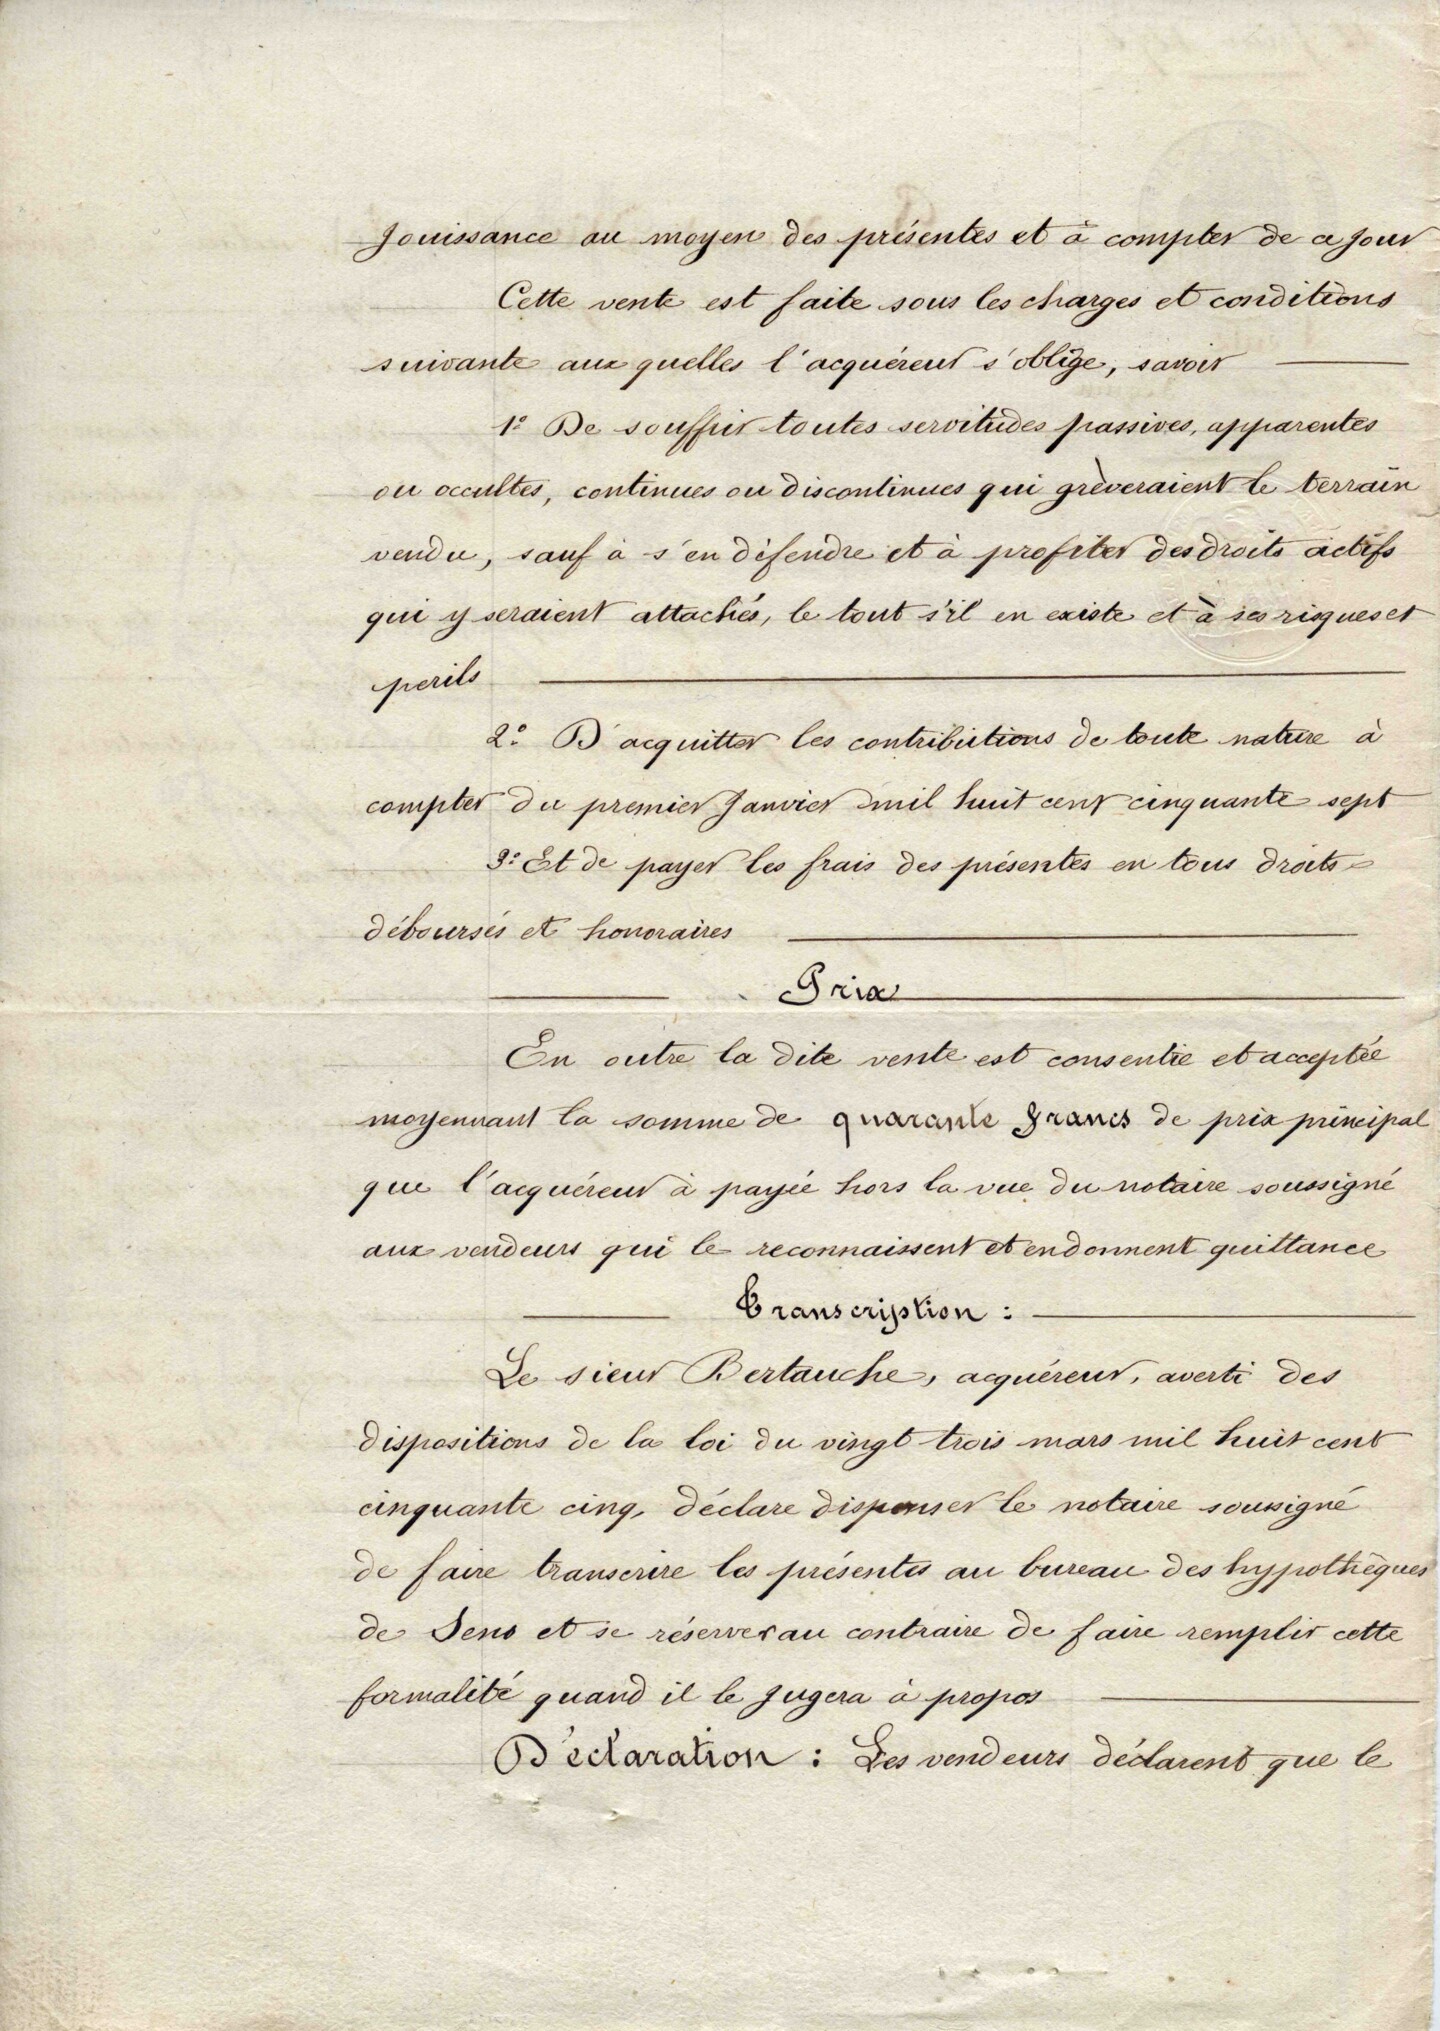 Jouissance au moyen des présentes et à compter de ce jour
Cette vente est faite sous les charges et conditions
suivante aux quelles l'acquéreur s'oblige, savoir
1° De souffrir toutes servitudes passives, apparentes
ou occultes, continues ou discontinues qui grèveraient le terrain
vendu, sauf à s'en défendre et à profiter des droits actifs
qui y seraient attachés, le tout s'il en existe et à ses risques et
perils
2° D'acquitter les contributions de toute nature à
compter du premier Janvier mil huit cent cinquante sept
3° Et de payer les frais des présentes en tous droits
déboursés et honoraires
Prix
En outre la dite vente est consentie et acceptée
moyennant la somme de quarante francs de prix principal
que l'acquéreur à payée hors la vue du notaire soussigné
aux vendeurs qui le reconnaissent et en donnent quittance
Transcription :
Le sieur Bertauche, acquéreur, averti des
dispositions de la loi du vingt trois mars mil huit cent
cinquante cinq, déclare dispenser le notaire soussigné
de faire transcrire les présentes au bureau des hypothèques
de Sens et se réserver au contraire de faire remplir cette
formalité quand il le jugera à propos
Déclaration : Les vendeurs déclarent que le